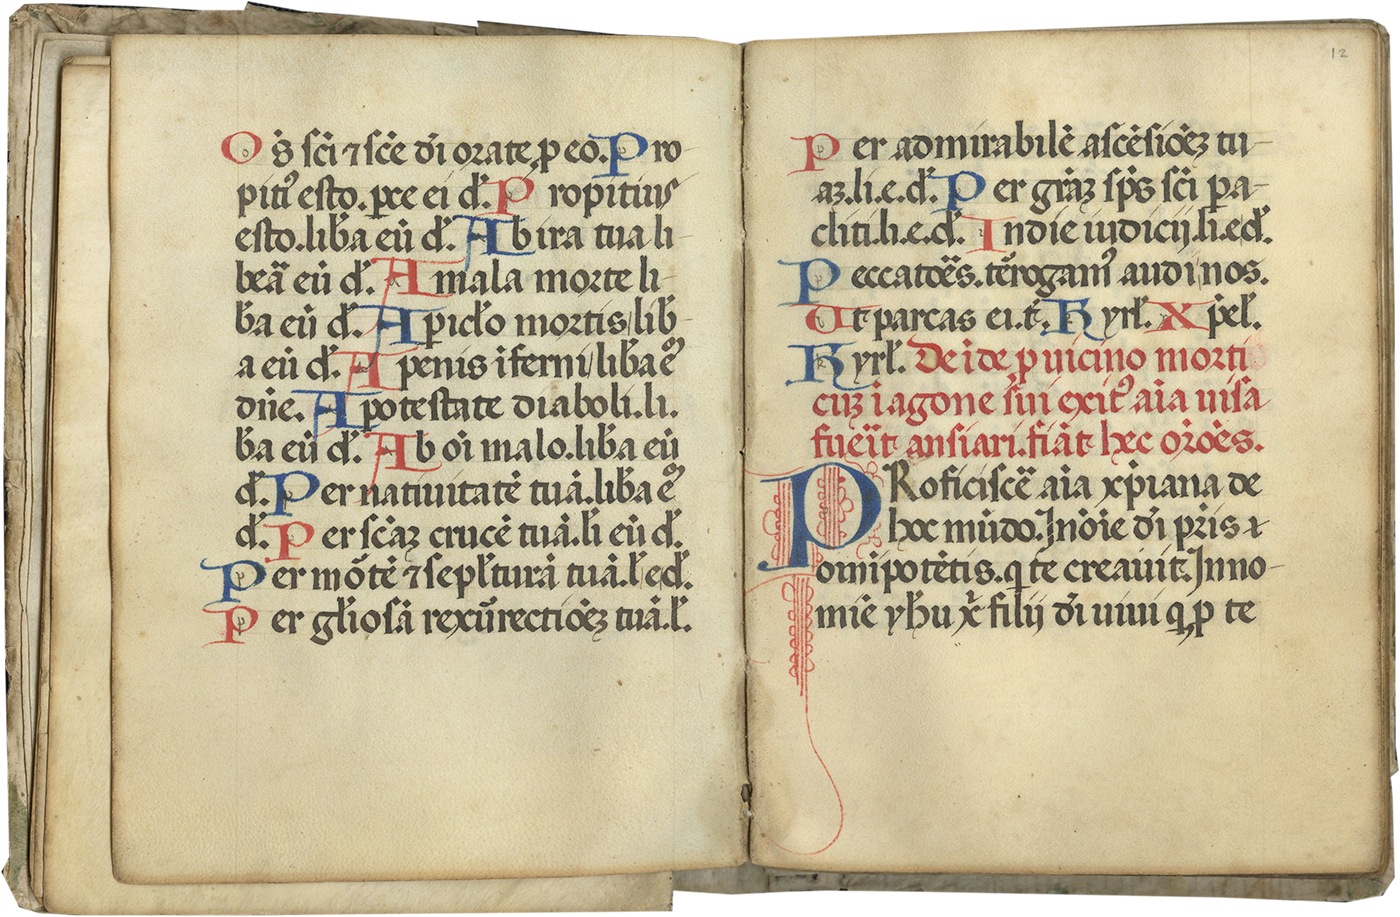 Os̄ sc̄i ⁊ sc̄e dī orate, ꝓ eo. Pro
pit᷒ esto. ꝑce ei d᷒. Propitius
esto. lib̄a eū d᷒. Ab ira tua li
beā eū d᷒. A mala morte li
b̄a eū d᷒. A pic̄lo mortis lib̄
a eū d᷒. A penis īferni lib̄a eū
dn̄e. A potestate diaboli. li.
b̄a eū d᷒. Ab oī malo. lib̄a eū
d᷒. Per natiuitatē tuā. lib̄a eū
d᷒. Per sc̄aꝫ crucē tuā. lī eū d᷒.
Per mōtē ⁊ sepl̄turā tuā. l̄ e d᷒.
Per gl̄iosā rexūrectiōeꝫ tuā. l̄.
12
Per admirabilē ascēsiōeꝫ tu-
aꝫ. li. e. d᷒. Per grāꝫ sp̄s sc̄i pa-
cliti. li. e. d᷒. In die iudicij. li. e d᷒.
Peccatoēs. tē rogam᷒ audi nos.
Ut parcas ei. t̄. Kyrl̄. Xp̄el̄.
Kyrl̄. De īde ꝓ uicino morti
cuꝫ ī agone sūi exit᷒ aīa uisa
fueīt ansiari. fiāt hec or̄oēs.
PRoficiscē aīa xp̄iana de
hoc mūdo. In oīe dī pr̄is ⁊
omīpotētis. q te creauit. In no-
mīe yh̄u xp̄ filij dī uiui q, ꝓ te